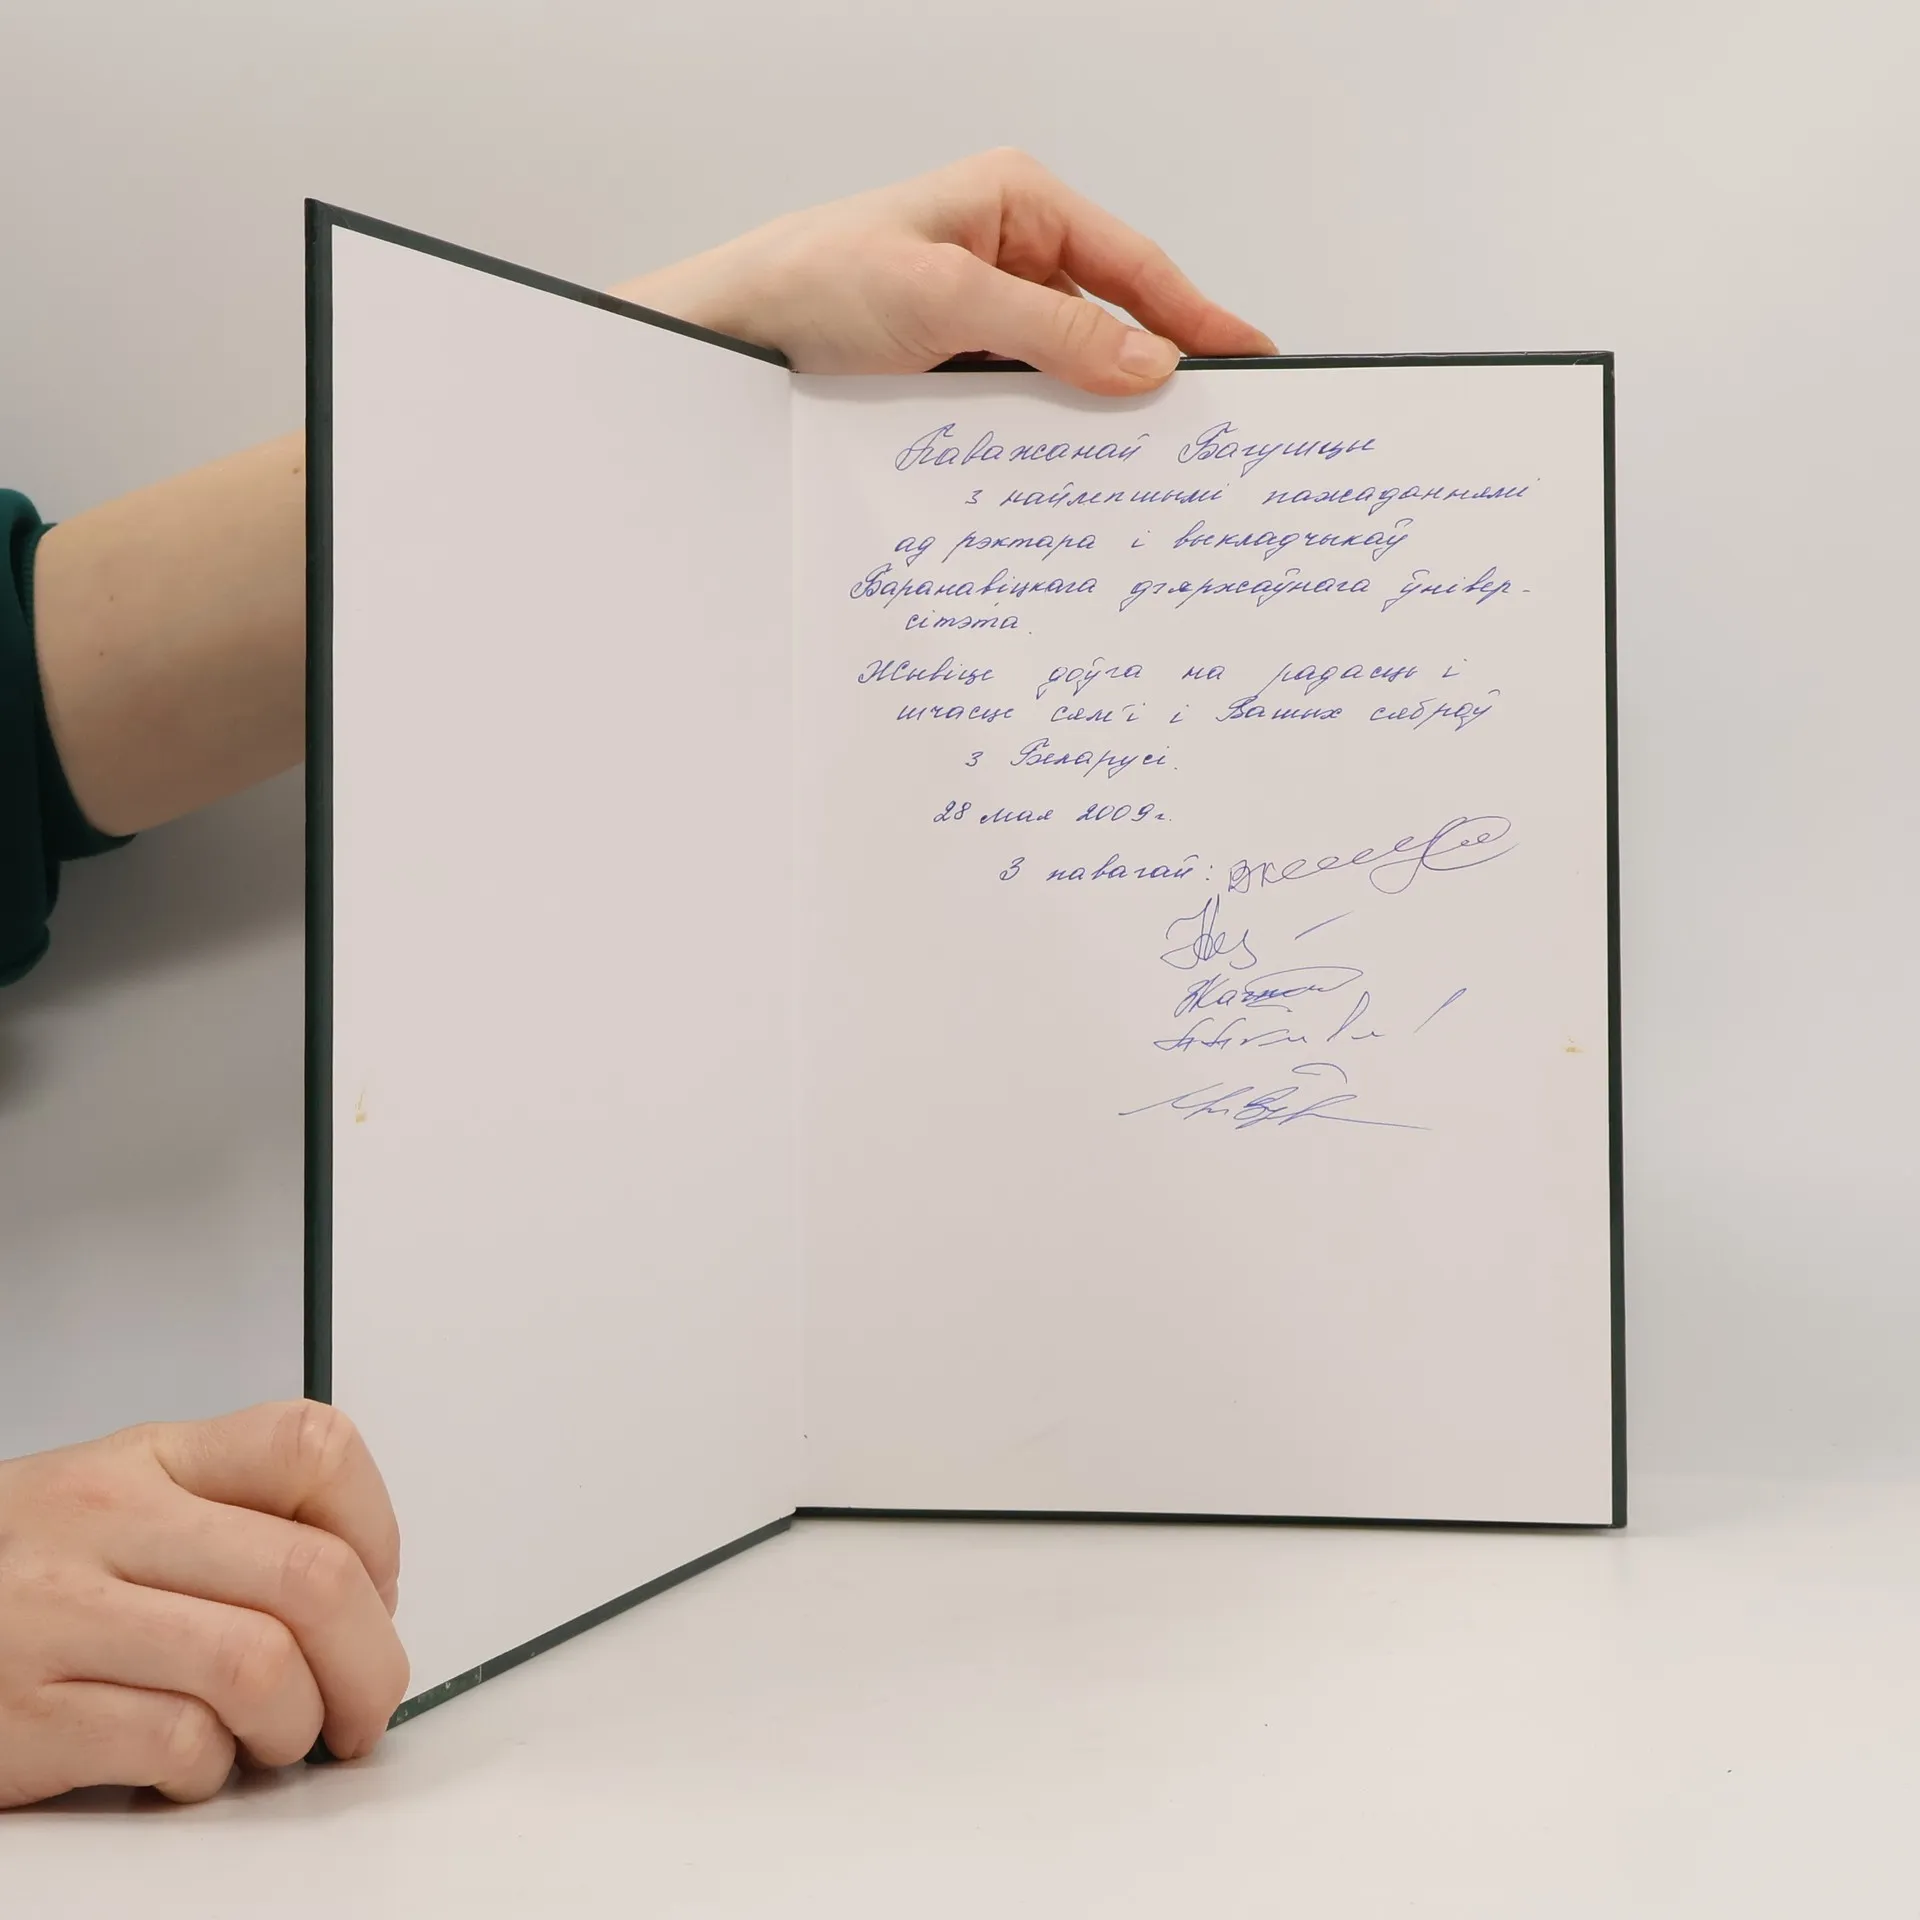 Паважанай Багушцы
з найлепшымі пажаданнямі
ад рэктара і выкладчыкаў
Баранавіцкага дзяржаўнага ўнівер-
сітэта.
Жывіце доўга на радасць і
шчасце сям'і і Вашых сяброў
з Беларусі.
28 мая 2009г.
З павагай: